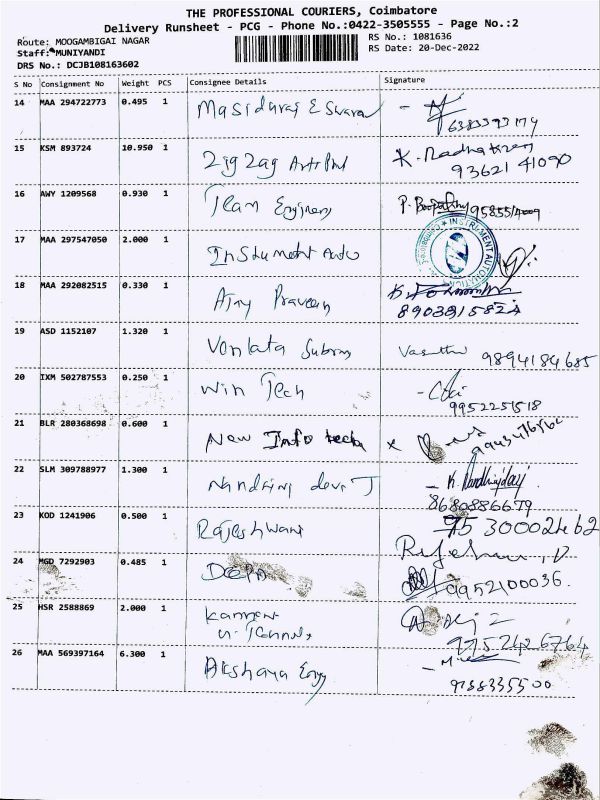 THE PROFESSIONAL COURIERS, Coimbatore
Delivery Runsheet - PCG - Phone No.:0422-3505555 - Page No.:2
Route: MOOGAMBIGAI NAGAR RS No.: 1081636
Staff: MUNIYANDI RS Date: 20-Dec-2022
DRS No.: DCJB108163602
S No Consignment No Weight PCS Consignee Details Signature
14 MAA 294722773 0.495 1 Masiduraj Eswaran
6383593179
15 KSM 893724 10.950 1 Zig Zag K. Radhakrean
93621 41090
16 AWY 1209568 0.930 1 Team Engineers P. Boopathy
17 MAA 297547050 2.000 1 Instument Auto
INSTRUMENT AUTOMATION
18 MAA 292082515 0.330 1 Ajay Praveen
19 ASD 1152107 1.320 1 Vasantha 9894184685
20 IXM 502787553 0.250 1 Win Tech
9952251518
21 BLR 280368698 0.600 1 New Info tech x
22 SLM 309788977 1.300 1 devi J
8680886679
23 KOD 1241906 0.500 1 Rajeshwari
24 MGD 7292903 0.485 1 Deepa 9952100036.
25 HSR 2588869 2.000 1
975 242 6764
26 MAA 569397164 6.300 1 Akshaya Engg